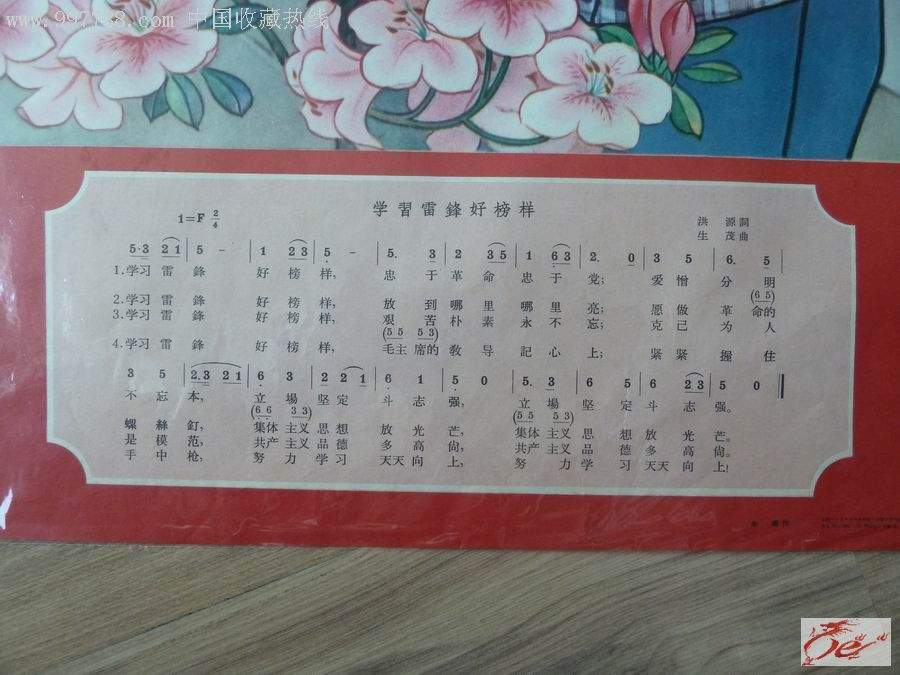 www.997788.com 中国收藏热线
学習雷鋒好榜样
1=F 2/4
洪源詞
生茂曲
5·3 2 1 | 5 - | 1 2 3 | 5 - | 5. 3 | 2 3 5 | 1 6 3 | 2. 0 | 3 5 | 6. 5 |
1.学习雷鋒 好榜样, 忠于革命忠于党; 爱憎分明
(6 5)
2.学习雷鋒 好榜样, 放到哪里哪里亮; 愿做革命的
3.学习雷鋒 好榜样, 艰苦朴素永不忘; 克己为人
(5 5 5 3)
4.学习雷鋒 好榜样, 毛主席的敎导記心上; 紧紧握住
3 5 | 2.3 2 1 | 6 3 | 2 2 1 | 6 1 | 5 0 | 5. 3 | 6 5 | 6 2 3 | 5 0 ‖
不忘本, 立場坚定斗志强, 立場坚定斗志强。
(6 6 3 3) (5 5 5 3)
螺絲釘, 集体主义思想放光芒, 集体主义思想放光芒。
是模范, 共产主义品德多高尙, 共产主义品德多高尙。
手中枪, 努力学习天天向上, 努力学习天天向上!